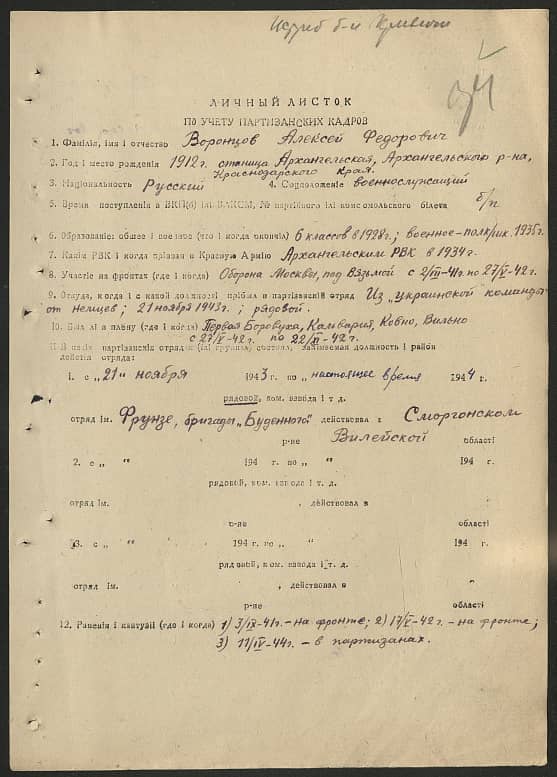 34
ЛИЧНЫЙ ЛИСТОК
ПО УЧЕТУ ПАРТИЗАНСКИХ КАДРОВ
1. Фамілія, імя і отчество Воронцов Алексей Федорович
2. Год і место рождения 1912 г. станица Архангельская, Архангельского р-на,
Краснодарского края.
3. Національность Русский 4. Соцположение военнослужащий
5. Время поступления в ВКП(б) ілі ВЛКСМ, № партійного ілі комсомольского білета б/п
6. Образованіе: общее і военное (что і когда окончіл) 6 классов в 1928 г.; военное - 1935 г.
7. Какім РВК і когда прізван в Красную Армію Архангельским РВК в 1934 г.
8. Участіе на фронтах (где і когда) Оборона Москвы, под Вязьмой с 2/III-41 г. по 27/V-42 г.
9. Откуда, когда і с какой должності прібыл в партізанскій отряд Из "украинской команды"
от немцев; 21 ноября 1943 г.; рядовой.
10. Был лі в плену (где і когда) Первая Боровуха, Кальвария, Ковно, Вильно
с 27/V-42 г. по 22/XI-42 г.
11. В каком партізанском отряде (ілі группе), состоял, занімаемая должность і район
действія отряда:
1. с „21" ноября 1943 г. по „настоящее время 1944 г.
рядовой, ком. взвода і т. д.
отряд ім. Фрунзе, бригады „Буденного" действовал в Сморгонском
р-не Вилейской області
2. с „ " 194 г. по „ " 194 г.
рядовой, ком. взвода і т. д.
отряд ім. , действовал в
р-не області
3. с „ " 194 г. по „ " 194 г.
рядовой, ком. взвода і т. д.
отряд ім. , действовал в
р-не області
12. Раненія і контузіі (где і когда) 1) 3/IX-41 г. - на фронте; 2) 17/V-42 г. - на фронте;
3) 11/IV-44 г. - в партизанах.